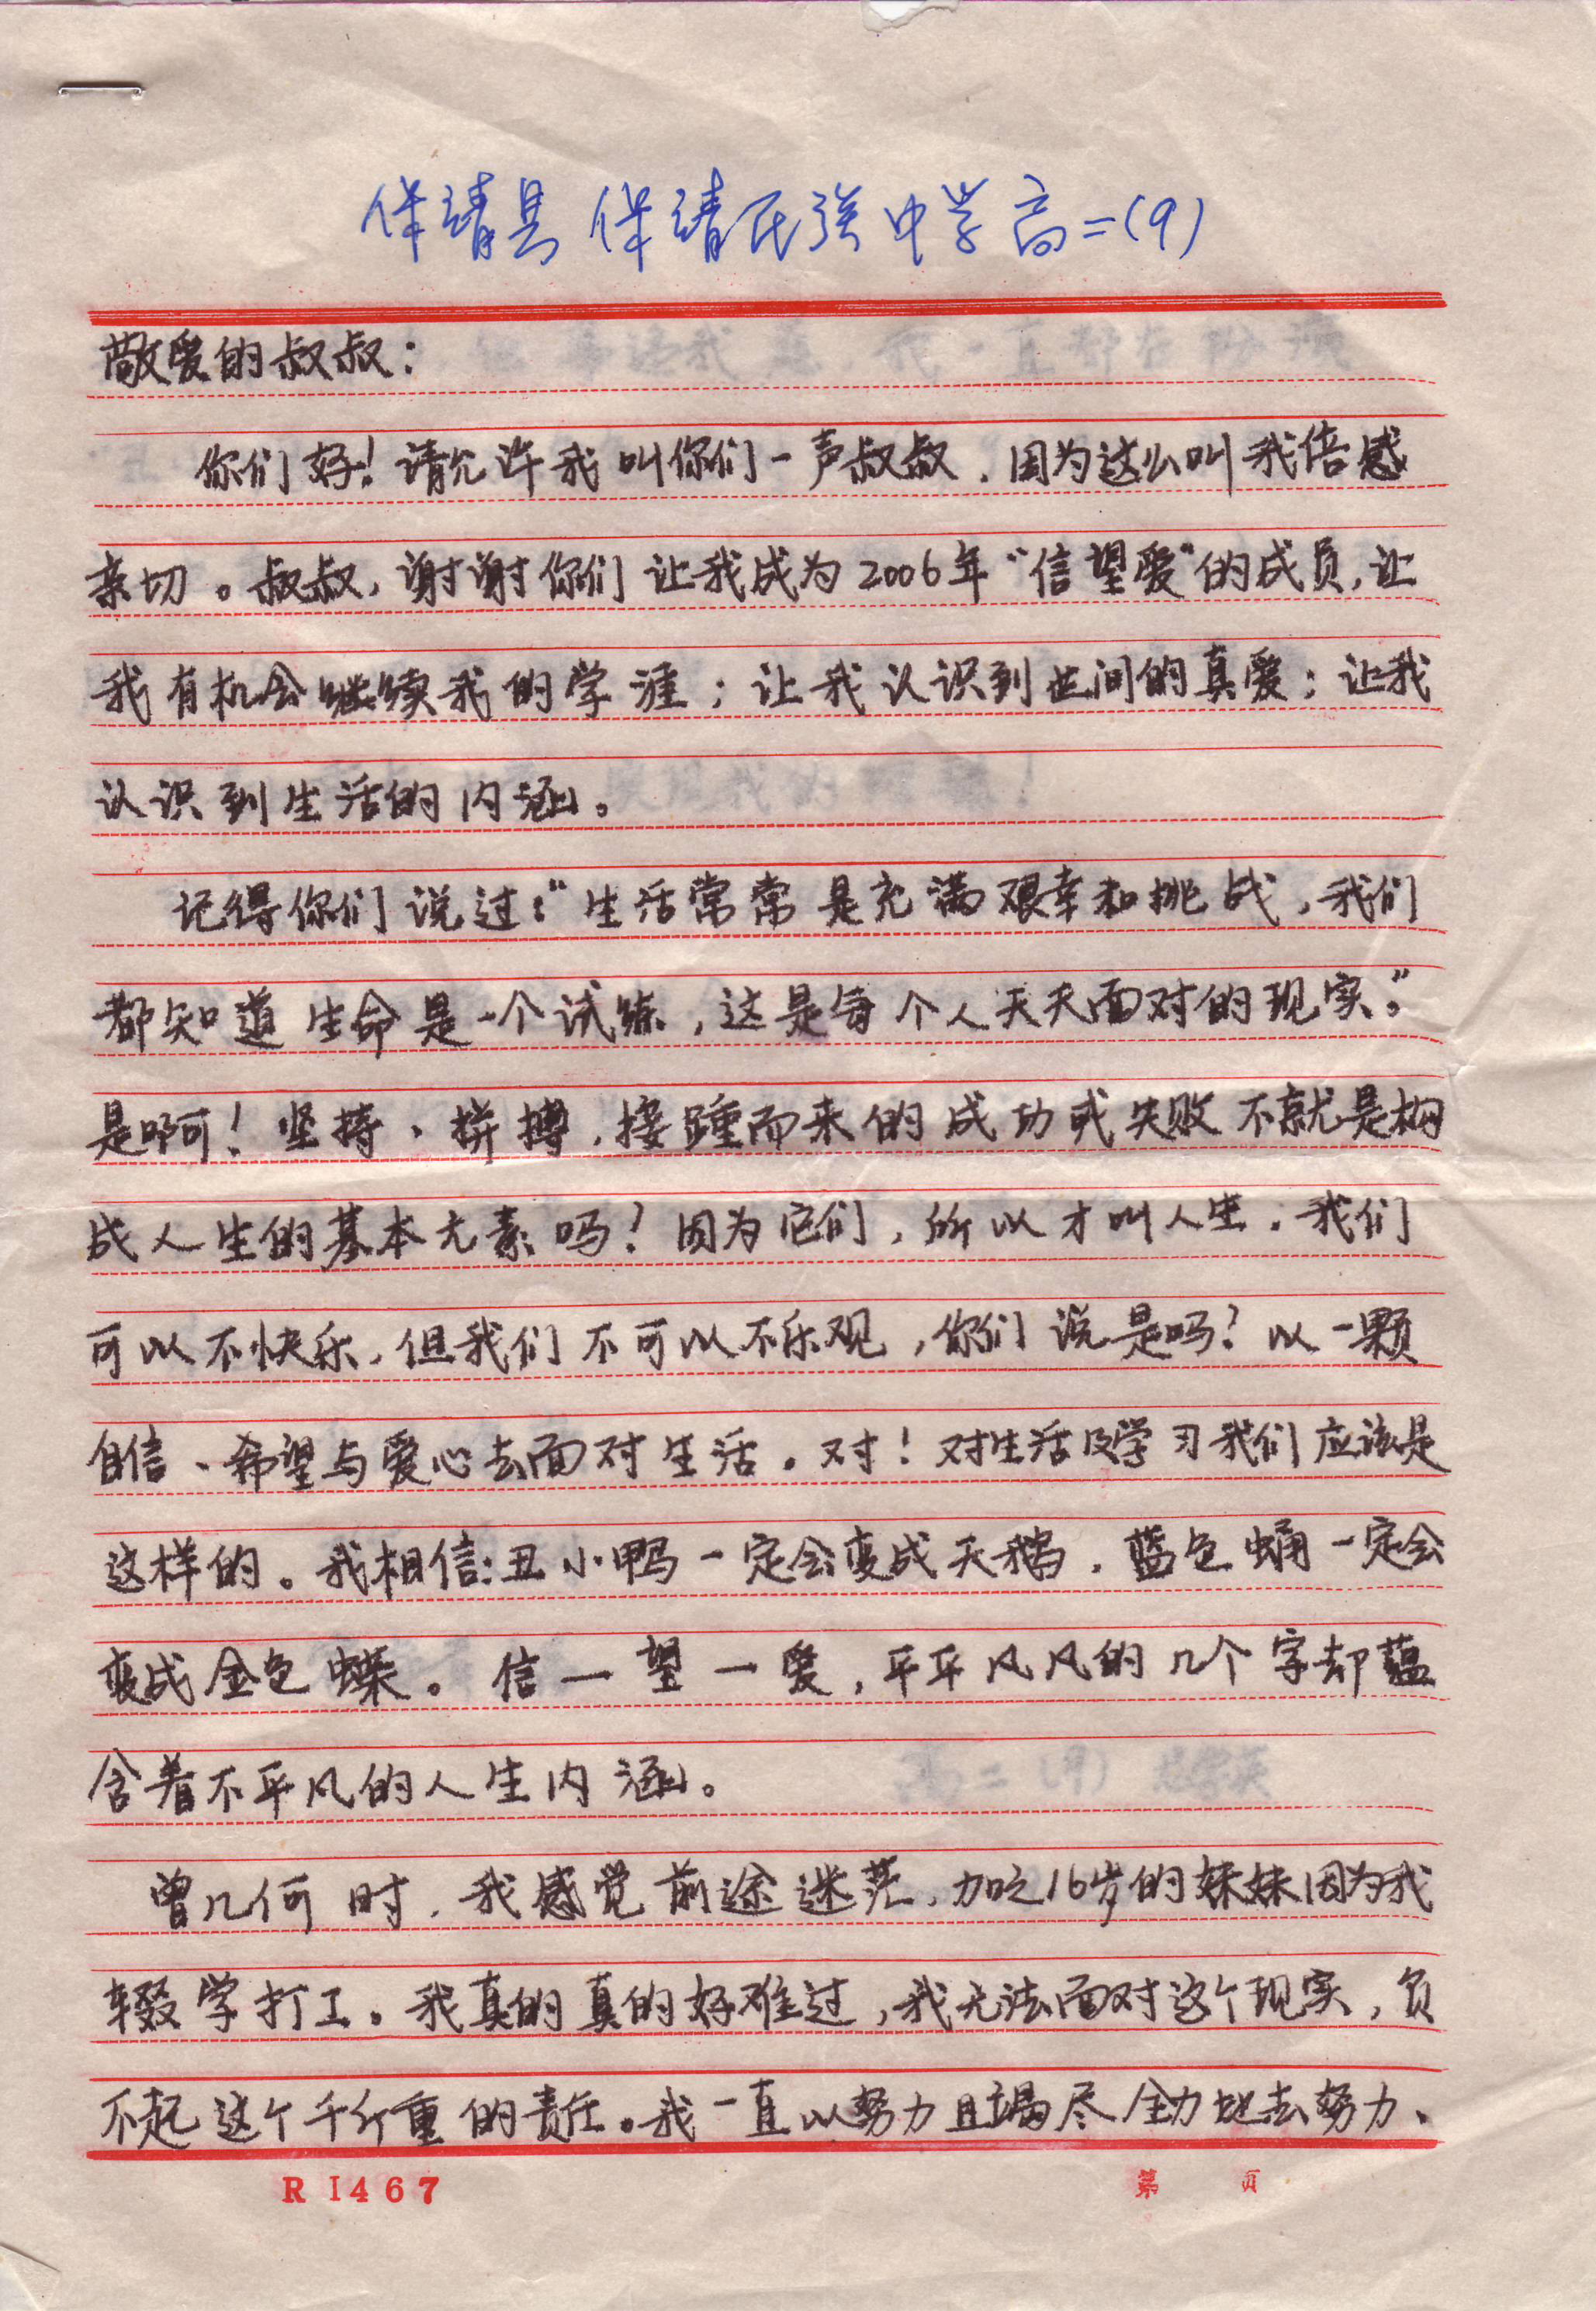 保靖县 保靖民族中学高二(9)
敬爱的叔叔：
你们好！请允许我叫你们一声叔叔，因为这么叫我倍感
亲切。叔叔，谢谢你们让我成为2006年“信望爱”的成员，让
我有机会继续我的学涯；让我认识到世间的真爱；让我
认识到生活的内涵。
记得你们说过：“生活常常是充满艰幸和挑战，我们
都知道生命是一个试练，这是每个人天天面对的现实。”
是啊！坚持、拼搏，接踵而来的成功或失败不就是构
成人生的基本元素吗！因为它们，所以才叫人生。我们
可以不快乐，但我们不可以不乐观，你们说是吗？以一颗
自信、希望与爱心去面对生活。对！对生活及学习我们应该是
这样的。我相信：丑小鸭一定会变成天鹅，蓝色蛹一定会
变成金色蝶。信一望一爱，平平凡凡的几个字却蕴
含着不平凡的人生内涵。
曾几何时，我感觉前途迷茫，加之16岁的妹妹因为我
辍学打工。我真的真的好难过，我无法面对这个现实，负
不起这个千斤重的责任。我一直以努力且竭尽全力地去努力、
R I467
第 页